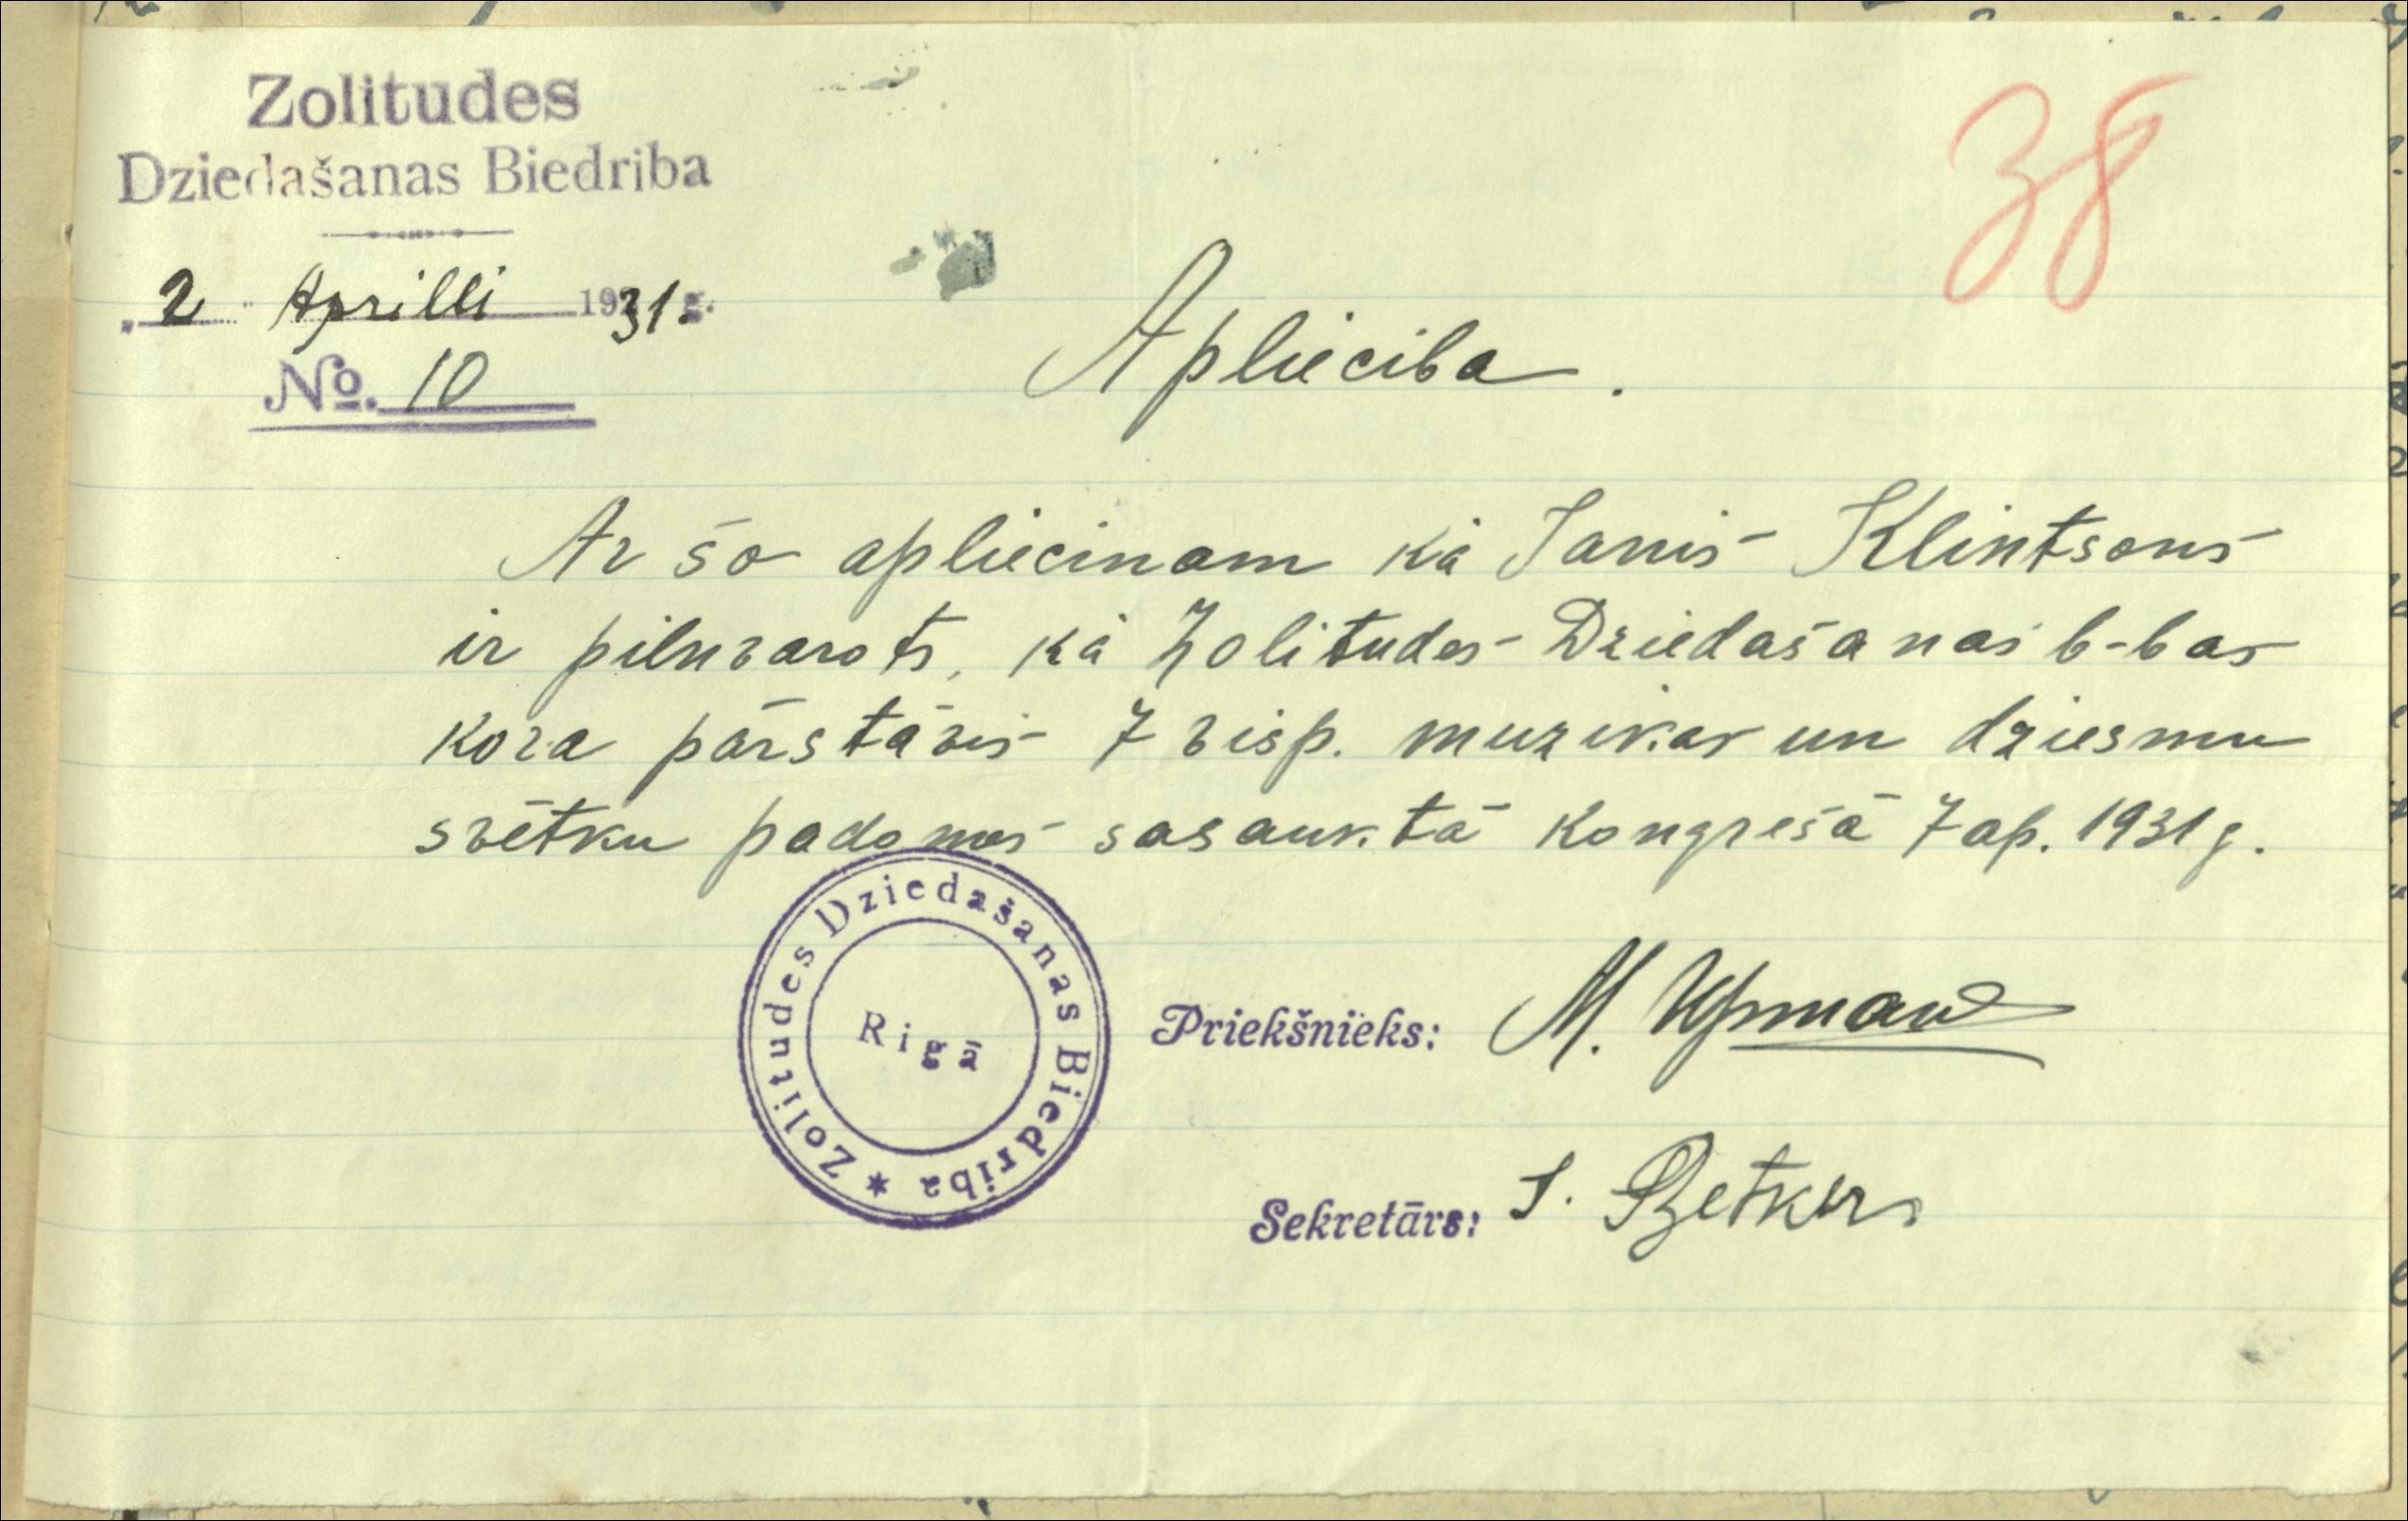 Zolitudes
Dziedašanas Biedriba
38
„2" Aprilli 1931 g.
No. 10
Apliecība.
Ar šo apliecinam kā Janis Klintsons
ir pilnvarots, kā Zolitudes Dziedašanas b-bas
kora pārstāvis 7 visp. muzikas un dziesmu
svētku padomes sasauktā kongresā 7 ap. 1931 g.
Zolitudes Dziedašanas Biedriba *
Rigā
Priekšnieks: M. Upman
Sekretārs: J.